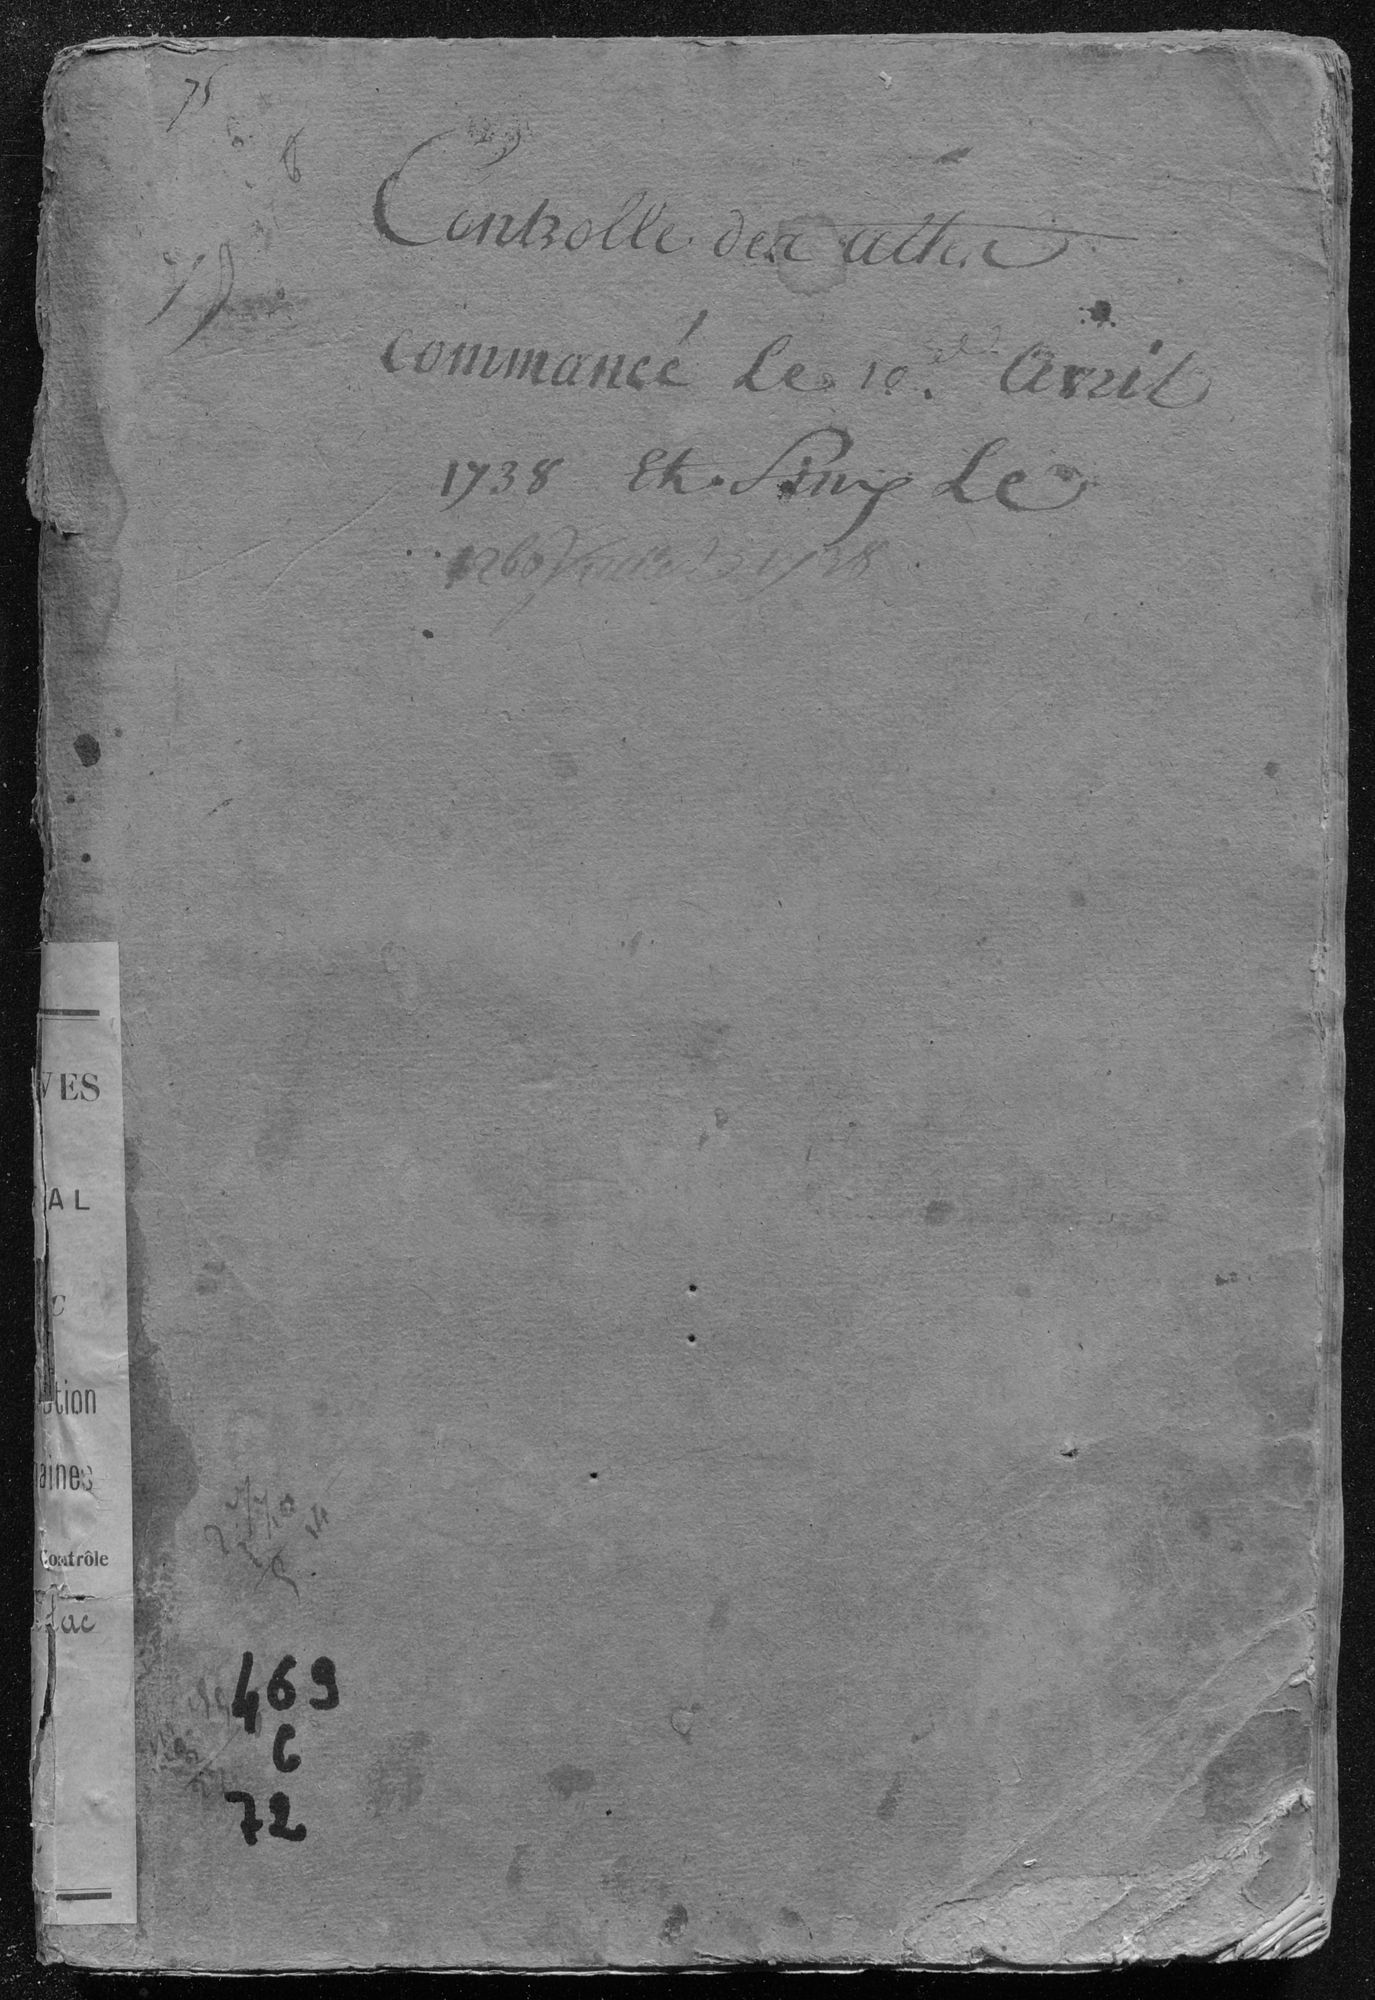 75
75
Controlle des actes
commancé Le 10.e Avril
1738 Et finy Le
1738
VES
AL
C
ction
aines
Contrôle
lac
469
C
72